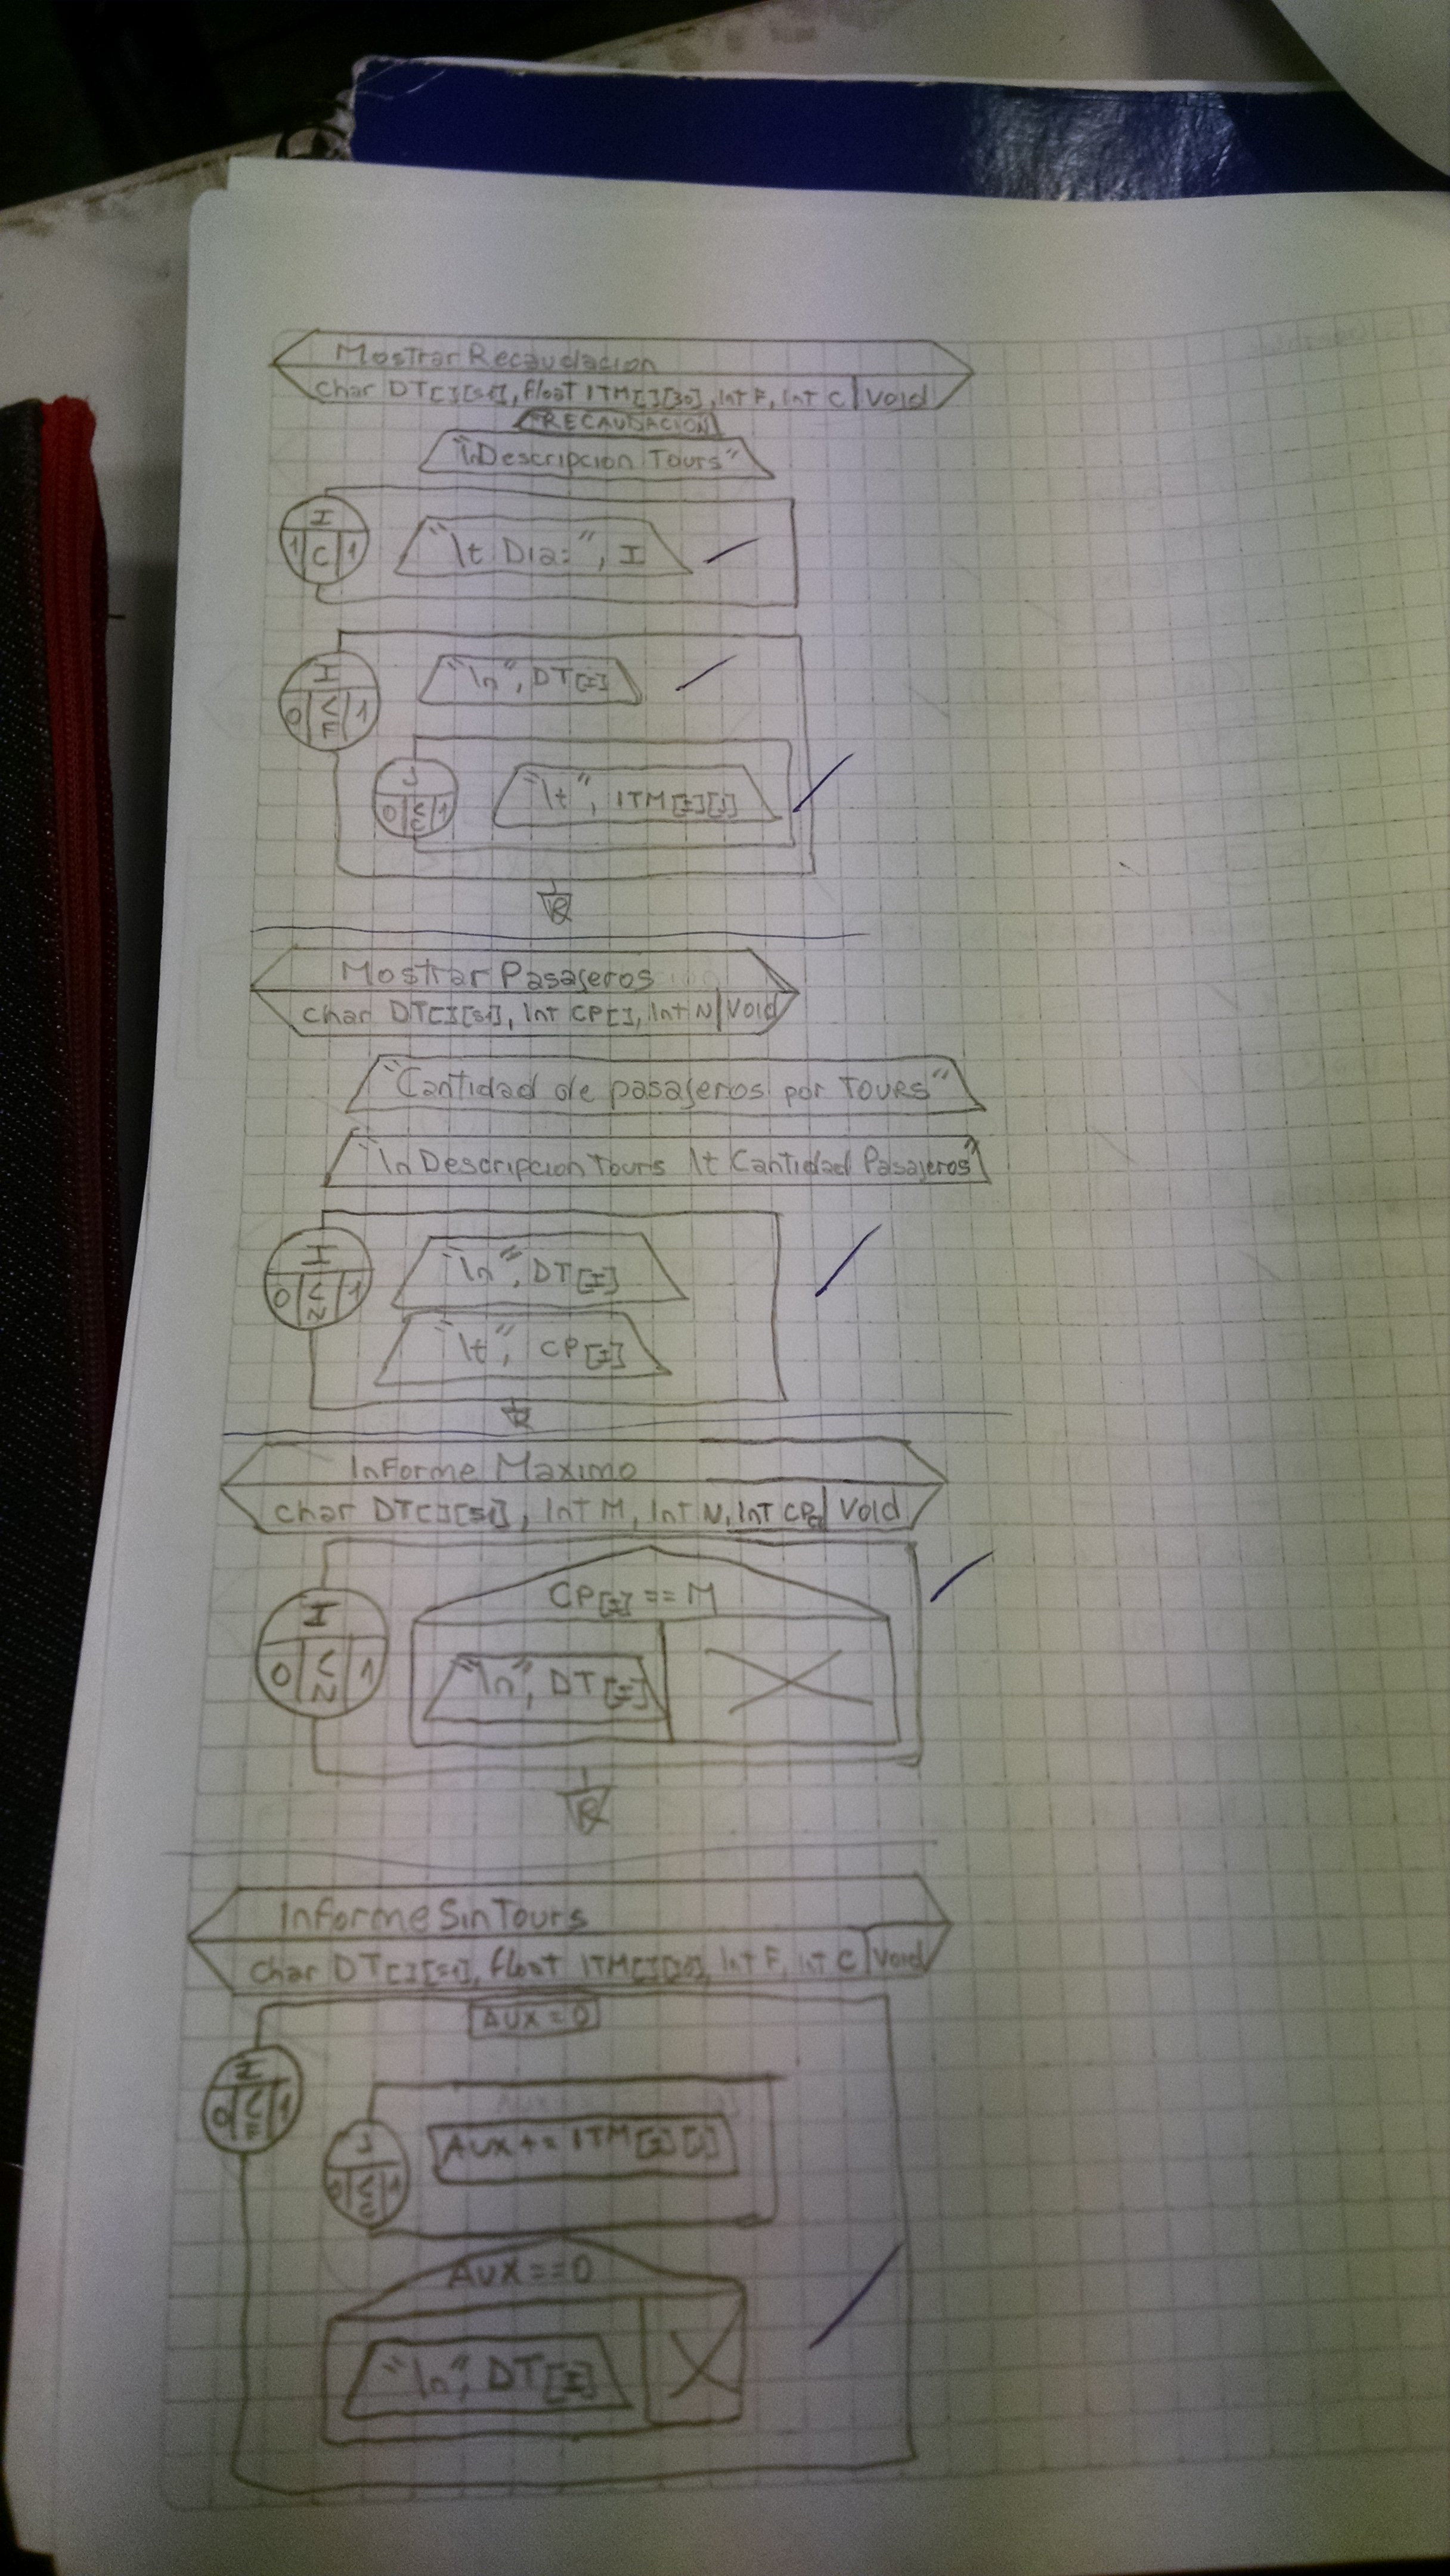 Mostrar Recaudacion
char DT[][51], float ITM[][30], int F, int C | Void
RECAUDACION
"\nDescripcion Tours"
I
1 | C | 1
"\t Dia:", I
I
0 | < F | 1
"\n", DT[I]
J
0 | < C | 1
"\t", ITM[I][J]
R
Mostrar Pasajeros
char DT[][51], int CP[], int N | Void
"Cantidad de pasajeros por TOURS"
"\n Descripcion Tours \t Cantidad Pasajeros"
I
0 | < N | 1
"\n", DT[I]
"\t", CP[I]
R
Informe Maximo
char DT[][51], int M, int N, int CP[] | Void
I
0 | < N | 1
CP[I] == M
"\n", DT[I]
R
Informe Sin Tours
char DT[][51], float ITM[][30], int F, int C | Void
AUX = 0
I
0 | < F | 1
J
0 | < C | 1
AUX += ITM[I][J]
AUX == 0
"\n", DT[I]